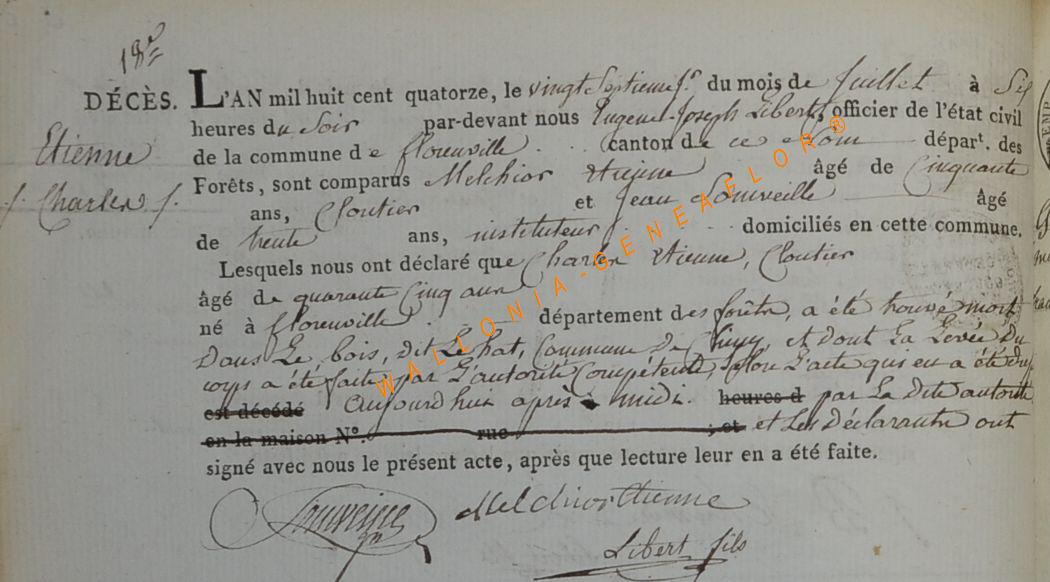 18e
DÉCÈS.
Etienne
Charles
L'AN mil huit cent quatorze, le vingt Septieme jr du mois de Juillet à Six
heures du Soir par-devant nous Eugene Joseph Libert, officier de l'état civil
de la commune de florenville canton de ce Nom départ. des
Forêts, sont comparus Melchior etienne âgé de Cinquante
ans, Cloutier et Jean Souveille âgé
de trente ans, instituteur domiciliés en cette commune.
Lesquels nous ont déclaré que Charles etienne, Cloutier
âgé de quarante Cinq ans
né à florenville département des forêtz, a été trouvé mort
dans Le bois, dit Le hat, Commune de Chiny, et dont La Levée du
corps a été faite par L'autorité Compétente, Selon L'acte qui en a été
est décédé aujourd'hui après midi. heures d par La dite autorité
en la maison N°. rue ; et et Les déclarants ont
signé avec nous le présent acte, après que lecture leur en a été faite.
Melchior Etienne
Libert fils
WALLONIA-GENEAFLOR®